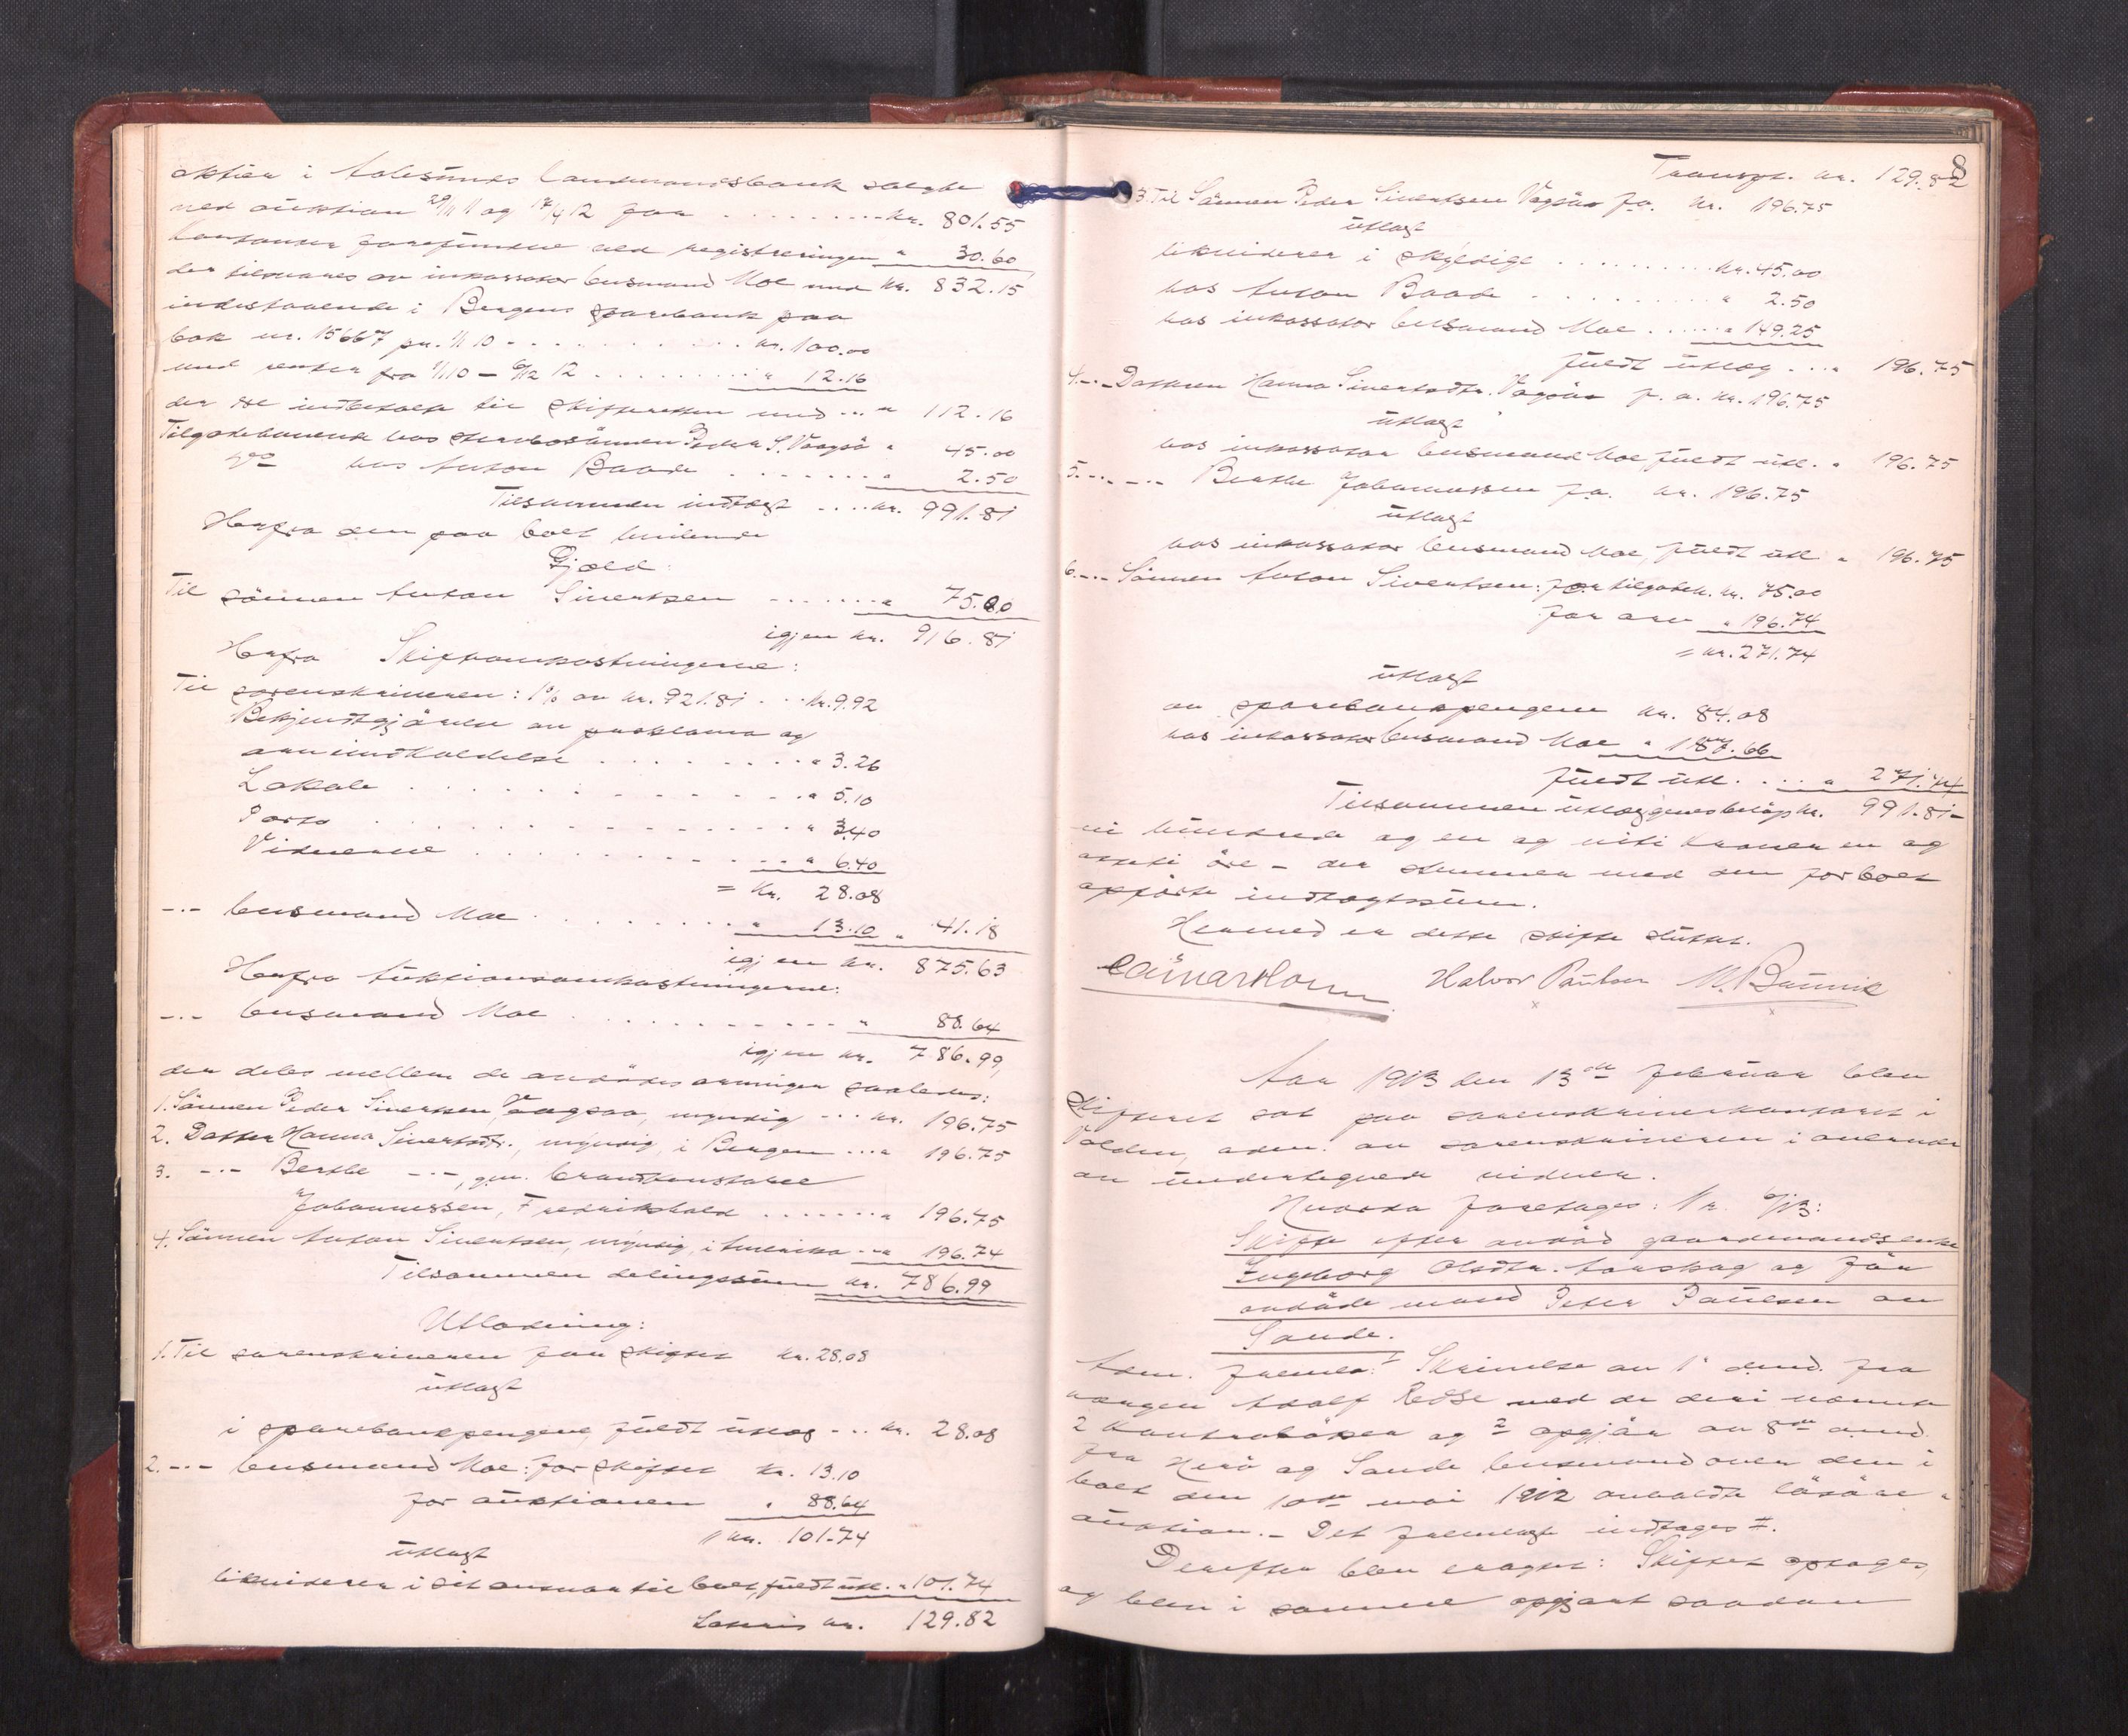 aktier i Aalesunds Landmandsbank solgte
ved auktion 29/11 11 og 17/4 12 for ......... kr. 801.55
kontanter forefundne ved registreringen " 30.60
der tilsvares av inkassator lensmand Moe med kr. 832.15
indestaaende i Bergens sparebank paa
bok nr. 15667 pr. 1/1 10 - . . . . . . . . kr. 100.00
med renter fra 1/1 10 — 12 . . . . . . . . " 12.16
der er indbetalt til skifteretten med ... " 112.16
Tilgodehavende hos stervbosönnen Peder S. Vaagsö " 45.00
do hos Anton Baade . . . . . . . " 2.50
Tilsammen indtægt .... kr. 991.81
Herfra den paa boet hvilende
Gjæld:
Til sönnen Anton Sivertsen - - . . . . . " 75.00
igjen kr. 916.81
Herfra Skifteomkostningerne:
Til sorenskriveren: 1% av kr. 921.81 . . . kr. 9.92
Bekjendtgjörelse av proklama og
arveindkaldelse . . . . . . . . . " 3.26
Lokale . . . . . . . . . . . . . " 5.10
Porto . . . . . . . . . . . . . " 3.40
Vidnerne . . . . . . . . . . . " 6.40
= Kr. 28.08
-.- lensmand Moe . . . . . . . . . " 13.10 " 41.18
igjen kr. 875.63
Herfra Auktionsomkostningerne:
-.- lensmand Moe . . . . . . . . . . . " 88.64
igjen kr. 786.99,
der deles mellem de avdödes arvinger saaledes:
1. Sönnen Peder Sivertsen Vaagsaa, myndig ... kr. 196.75
2. Datter Hanna Sivertsdtr., myndig, i Bergen ... " 196.75
3. -.- Berthe -.-, gm. brandkonstabel
Johannessen, Fredrikshald ....... " 196.75
4. Sönnen Anton Sivertsen, myndig, i Amerika ... 196.74
Tilsammen delingssum kr. 786.99
Utlodning:
1. Til sorenskriveren for skiftet kr. 28.08
utlagt
i sparebankpengene, fuldt utlæg ... kr. 28.08
2. -.- lensmand Moe: for skiftet kr. 13.10
for auktionen " 88.64
kr. 101.74
utlagt
likviderer i sit ansvar til boet, fuldt utl. " 101.74
Lateris kr. 129.82
8
Transpt. kr. 129.82
3. Til Sönnen Peder Sivertsen Vagsöe f.a. kr. 196.75
utlagt
likviderer i skyldige . . . . . . . . . . kr. 45.00
hos Anton Baade . . . . . . . . . . " 2.50
hos inkassator lensmand Moe . . . . . " 149.25
fuldt utlæg ... " 196.75
4. -.- Datteren Hanna Sivertsdtr. Vagsöe f. a. kr. 196.75
utlagt
hos inkassator lensmand Moe, fuldt utl. " 196.75
5. -.- -.- Berthe Johannessen f.a. kr. 196.75
utlagt
hos inkassator lensmand Moe, fuldt utl " 196.75
6. -.- Sönnen Anton Sivertsen: for tilgodeh. kr. 75.00
for arv " 196.74
= kr. 271.74
utlagt
av sparebankpengene kr. 84.08
hos inkassator lensmand Moe " 187.66
fuldt utl. . ... " 271.74
Tilsammen utlæggenes belöp kr. 991.81 -
ni hundrede og en og niti kroner en og
otteti öre - der stemmer med den for boet
opförte indtægtssum.
Hermed er dette skifte sluttet.
Halvor Paulsen M. Bauvik
Aar 1913 den 13de februar blev
skifteret sat paa sorenskriverkontoret i
Volden, adm. av sorenskriveren i overvær
av undertegnede vidner.
Hvorda foretages: Nr. 6/13:
Skifte efter avdöd gaardmandsenke
Ingeborg Olsdtr. Aarskog og för
avdöde mand Peter Paulsen av
Sande.
Adm. fremla: 1 Skrivelse av 1. dmd. fra
vergen Adolf Redse med de deri nævnte
2 kontraböker og 2 opgjör av 8de dmd.
fra Herö og Sande lensmand over den i
boet den 10de mai 1912 avholdte lösöre-
auktion. - Det fremlagte indtages #.
Derefter blev eragtet: Skiftet optages,
og blev i samme opgjort saadan